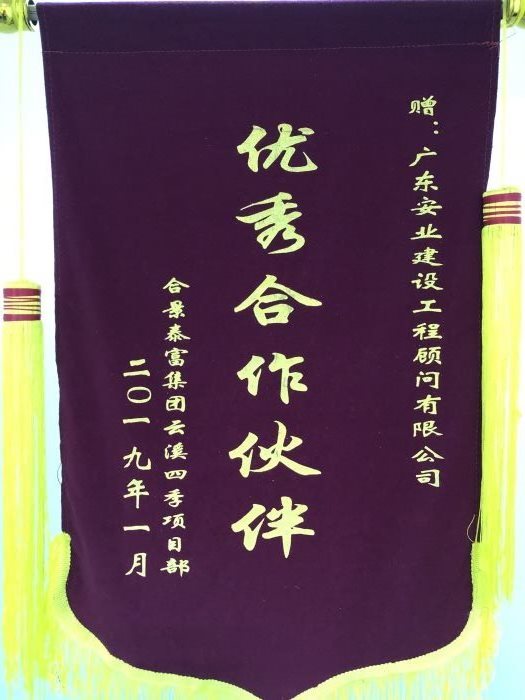 赠：广东安业建设工程顾问有限公司
优秀合作伙伴
合景泰富集团云溪四季项目部
二〇一九年一月